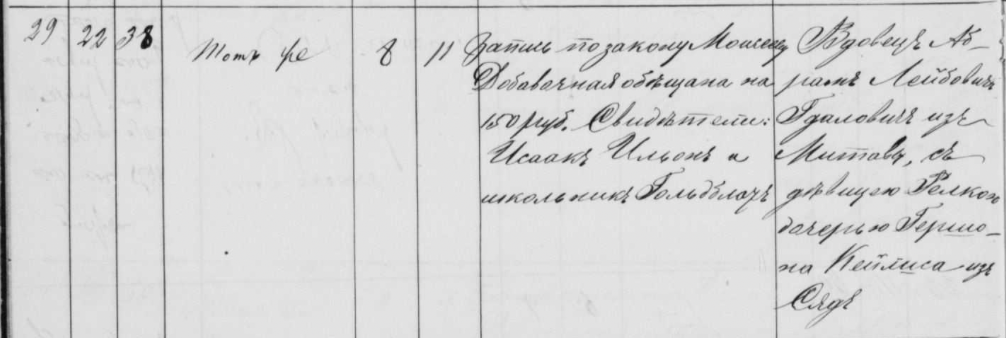 29 22 38 Тотъ же 8 11
Запись по закону Моисея
Добавочная обѣщана на
150 руб. Свидѣтели:
Исаакъ Ильонъ и
школьникъ Гольдблатъ
Вдовецъ Аб-
рамъ Лейбовичъ
Гдаловичъ изъ
Митавы, съ
дѣвицею Релкою
дочерью Гершо-
на Кейлиса изъ
Сядъ